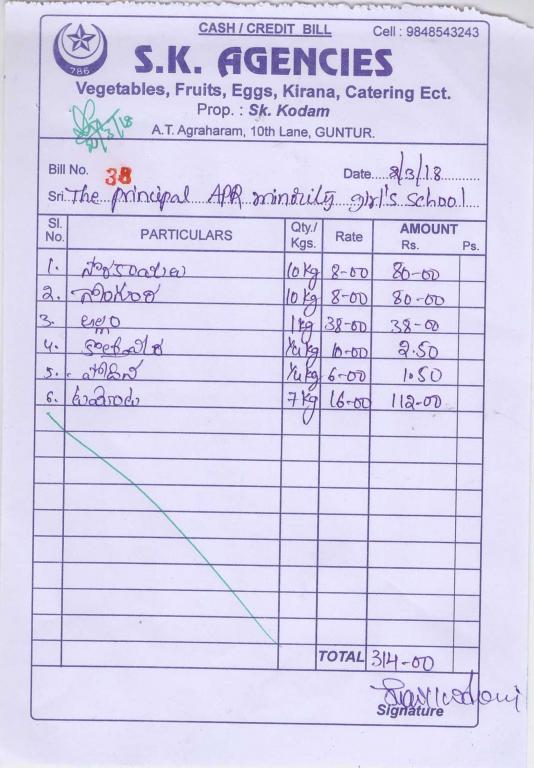 CASH / CREDIT BILL
Cell : 9848543243
786
S.K. AGENCIES
Vegetables, Fruits, Eggs, Kirana, Catering Ect.
Prop. : Sk. Kodam
A.T. Agraharam, 10th Lane, GUNTUR.
Bill No. 38
Date 8/3/18
Sri. The principal APR minority girl's school
Sl. No. PARTICULARS Qty./ Kgs. Rate AMOUNT Rs. Ps.
1. 10 kg 8-00 80-00
2. 10 kg 8-00 80-00
3. అల్లం 1 kg 38-00 38-00
4. 1/4 kg 10-00 2.50
5. 1/4 kg 6-00 1.50
6. 7 kg 16-00 112-00
TOTAL 314-00
Signature